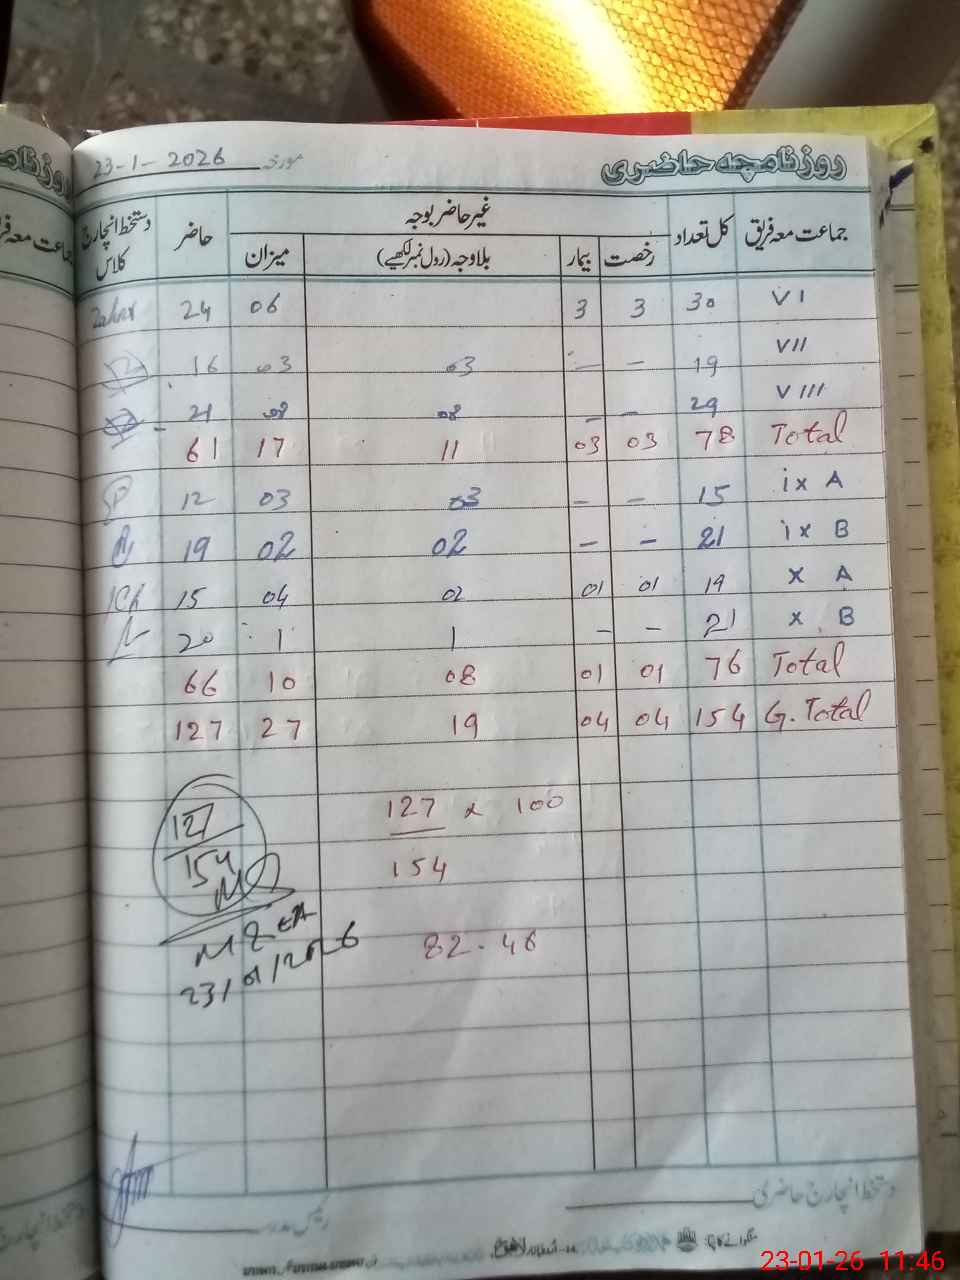 روزنامچہ حاضری مورخہ 23-1-2026
جماعت معہ فریق کل تعداد غیر حاضر بوجہ حاضر دستخط انچارج کلاس
رخصت بیمار بلاوجہ (رول نمبر لکھیے) میزان
VI 30 3 3 06 24
VII 19 - - 03 03 16
VIII 29 - - 08 08 21
Total 78 03 03 11 17 61
ix A 15 - - 03 03 12
ix B 21 - - 02 02 19
x A 19 01 01 02 04 15
x B 21 - - 1 1 20
Total 76 01 01 08 10 66
G. Total 154 04 04 19 27 127
127 x 100
154
82.46
127
154
23/01/2026
دستخط انچارج حاضری
رئیس مدرسہ
23-01-26 11:46